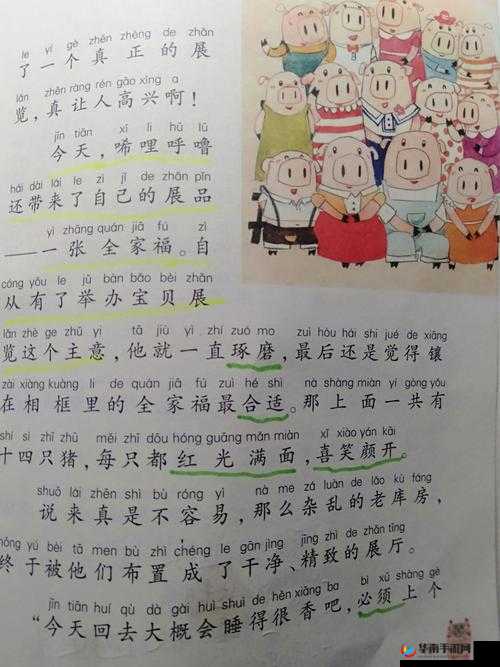 le yí gè zhēn zhèng de zhǎn
了一个真正的展
lǎn zhēn ràng rén gāo xìng a
览，真让人高兴啊！
jīn tiān xī li hū lū
今天，唏哩呼噜
hái dài lái le zì jǐ de zhǎn pǐn
还带来了自己的展品
yì zhāng quán jiā fú zì
——一张全家福。自
cóng yǒu le jǔ bàn bǎo bèi zhǎn
从有了举办宝贝展
lǎn zhè ge zhǔ yi tā jiù yì zhí zuó mo zuì hòu hái shi jué de xiāng
览这个主意，他就一直琢磨，最后还是觉得镶
zài xiàng kuàng li de quán jiā fú zuì hé shì nà shàng miàn yí gòng yǒu
在相框里的全家福最合适。那上面一共有
shí sì zhī zhū měi zhī dōu hóng guāng mǎn miàn xǐ xiào yán kāi
十四只猪，每只都红光满面，喜笑颜开。
shuō lái zhēn shì bù róng yì nà me zá luàn de lǎo kù fáng
说来真是不容易，那么杂乱的老库房，
zhōng yú bèi tā men bù zhì chéng le gān jìng jīng zhì de zhǎn tīng
终于被他们布置成了干净、精致的展厅。
jīn tiān huí qù dà gài huì shuì de hěn xiāng ba bì xū shàng gè
“今天回去大概会睡得很香吧，必须上个
华南手机网